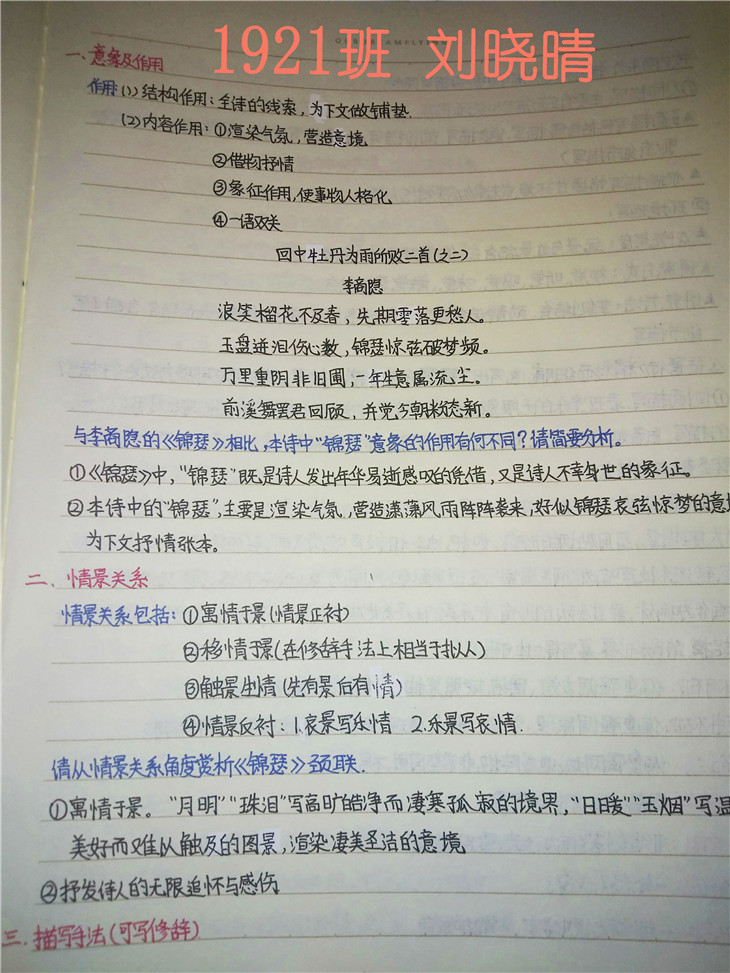 1921班 刘晓晴
一、意象及作用
作用:(1)结构作用:全诗的线索,为下文做铺垫.
(2)内容作用:①渲染气氛,营造意境
②借物抒情
③象征作用,使事物人格化
④一语双关
回中牡丹为雨所败二首(之二)
李商隐
浪笑榴花不及春,先期零落更愁人。
玉盘迸泪伤心数,锦瑟惊弦破梦频。
万里重阴非旧圃,一年生意属流尘。
前溪舞罢君回顾,并觉今朝粉态新。
与李商隐的《锦瑟》相比,本诗中“锦瑟”意象的作用有何不同?请简要分析。
①《锦瑟》中,“锦瑟”既是诗人发出年华易逝感叹的凭借,又是诗人不幸身世的象征。
②本诗中的“锦瑟”,主要是渲染气氛,营造潇薄风雨阵阵袭来,好似锦瑟哀弦惊梦的意境
为下文抒情张本。
二、情景关系
情景关系包括:①寓情于景(情景正衬)
②移情于景(在修辞手法上相当于拟人)
③触景生情(先有景后有情)
④情景反衬:1.哀景写乐情 2.乐景写哀情.
请从情景关系角度赏析《锦瑟》颈联.
①寓情于景。“月明”“珠泪”写高旷皓净而凄寒孤寂的境界,“日暖”“玉烟”写温
美好而难以触及的图景,渲染凄美圣洁的意境
②抒发诗人的无限追怀与感伤
三.描写手法(可写修辞)